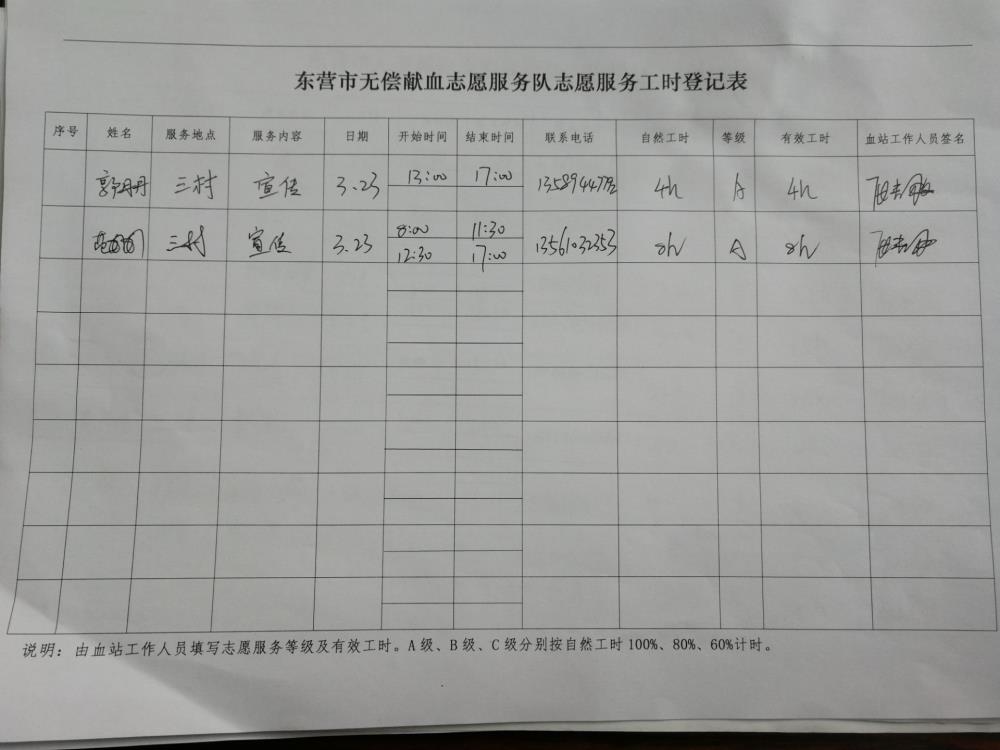 东营市无偿献血志愿服务队志愿服务工时登记表
序号 姓名 服务地点 服务内容 日期 开始时间 结束时间 联系电话 自然工时 等级 有效工时 血站工作人员签名
郭丹丹 三村 宣传 3.23 13:00 17:00 4h A 4h
8:00 11:30
三村 宣传 3.23 13561032353 8h A 8h
12:30 17:00
说明：由血站工作人员填写志愿服务等级及有效工时。A级、B级、C级分别按自然工时100%、80%、60%计时。